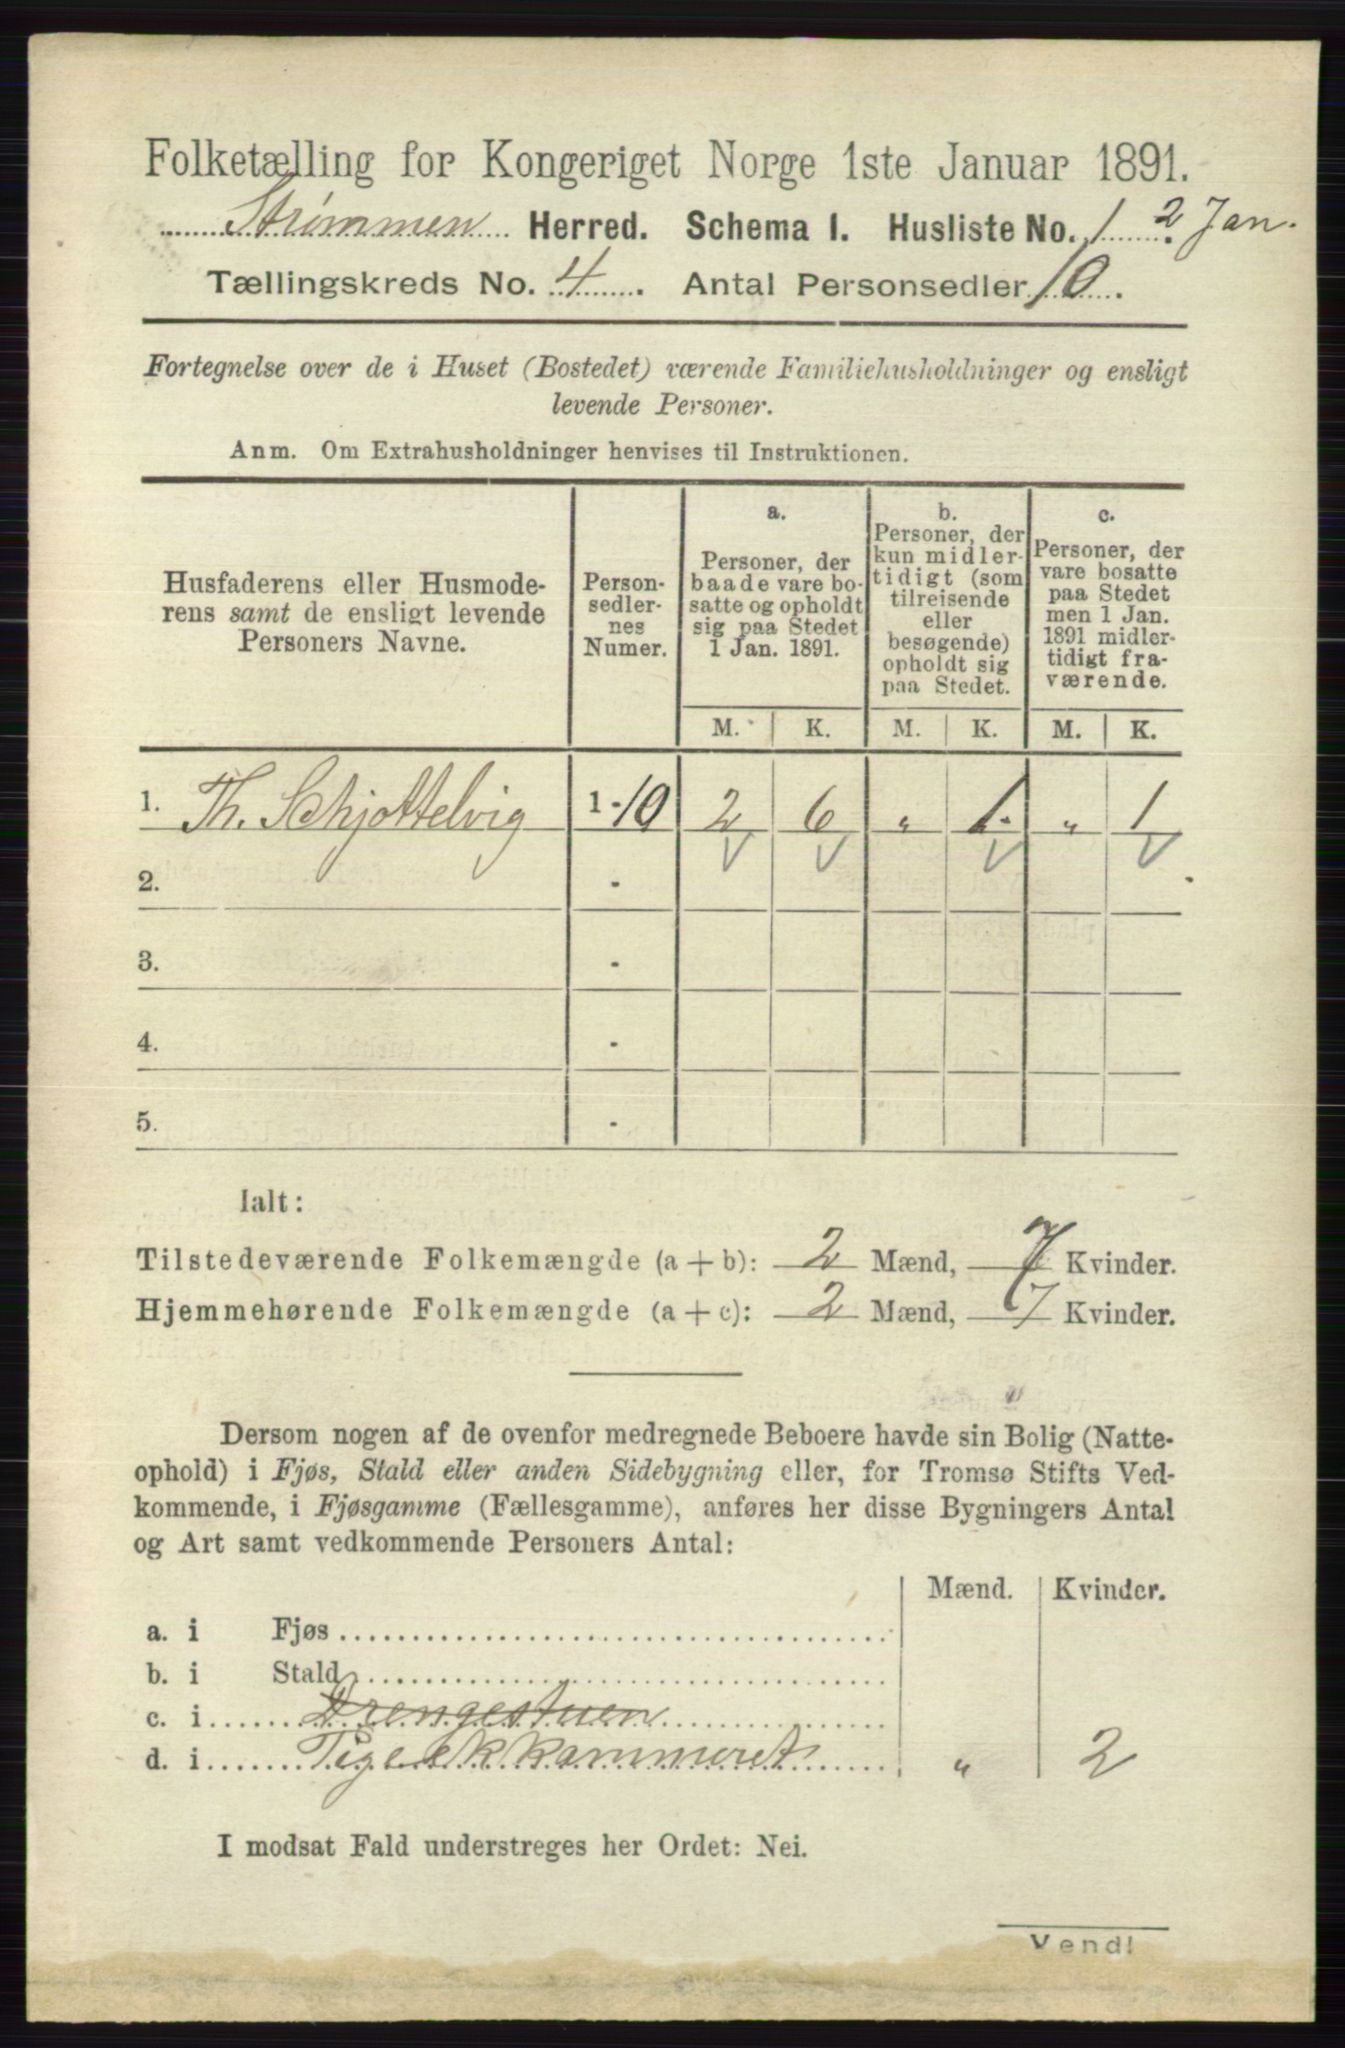 Folketælling for Kongeriget Norge 1ste Januar 1891.
Strømmen Herred. Schema I. Husliste No. 1. 2 Jan.
Tællingskreds No. 4. Antal Personsedler 10.
Fortegnelse over de i Huset (Bostedet) værende Familiehusholdninger og ensligt
levende Personer.
Anm. Om Extrahusholdninger henvises til Instruktionen.
Husfaderens eller Husmode-
rens samt de ensligt levende
Personers Navne.
Person-
sedler-
nes
Numer.
a.
Personer, der
baade vare bo-
satte og opholdt
sig paa Stedet
1 Jan. 1891.
b.
Personer, der
kun midler-
tidigt (som
tilreisende
eller
besøgende)
opholdt sig
paa Stedet.
c.
Personer, der
vare bosatte
paa Stedet
men 1 Jan.
1891 midler-
tidigt fra-
værende.
M. K. M. K. M. K.
1. Th. Schjottelvig 1-10 2 6 „ 1. „ 1
2. -
3. -
4. -
5. -
Ialt:
Tilstedeværende Folkemængde (a + b): 2 Mænd, 7 Kvinder.
Hjemmehørende Folkemængde (a + c): 2 Mænd, 7 Kvinder.
Dersom nogen af de ovenfor medregnede Beboere havde sin Bolig (Natte-
ophold) i Fjøs, Stald eller anden Sidebygning eller, for Tromsø Stifts Ved-
kommende, i Fjøsgamme (Fællesgamme), anføres her disse Bygningers Antal
og Art samt vedkommende Personers Antal:
Mænd. Kvinder.
a. i Fjøs
b. i Stald
c. i Drengestuen
d. i „ 2
I modsat Fald understreges her Ordet: Nei.
Vend!